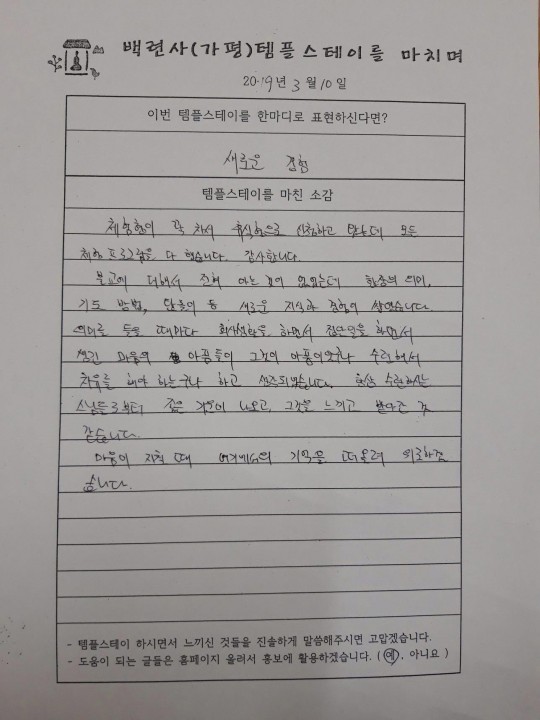 백련사(가평)템플스테이를 마치며
2019년 3월 10일
이번 템플스테이를 한마디로 표현하신다면?
새로운 경험
템플스테이를 마친 소감
체험형이 꽉 차서 휴식형으로 신청하고 왔는데 모든
체험 프로그램을 다 했습니다. 감사합니다.
불교에 대해서 전혀 아는 것이 없었는데 합장의 의미,
기도 방법, 탑돌이 등 새로운 지식과 경험이 쌓였습니다.
의미를 들을 때마다 회사생활을 하면서 집안일을 하면서
생긴 마음의 아픔들이 그것이 아픔이었구나 수련해서
치유를 해야 하는구나 하고 생각되었습니다. 항상 수련하는
스님들로부터 좋은 기운이 나오고, 그것을 느끼고 받아간 것
같습니다.
마음이 지칠 때 여기에서의 기억을 떠올려 위로하겠
습니다.
- 템플스테이 하시면서 느끼신 것들을 진솔하게 말씀해주시면 고맙겠습니다.
- 도움이 되는 글들은 홈페이지 올려서 홍보에 활용하겠습니다. (예, 아니요)